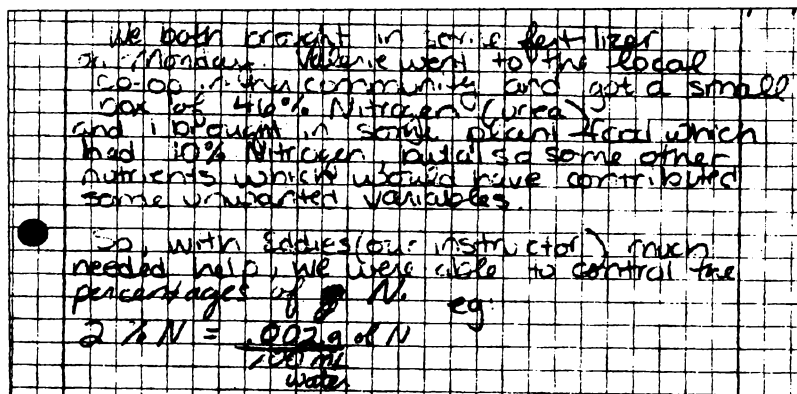 We both brought in some fertilizer
on Monday. Valerie went to the local
co-op in this community and got a small
box of 46% Nitrogen (urea)
and i brought in some plant food which
had 10% Nitrogen, but also some other
nutrients which would have contributed
some unwanted variables.
So, with Eddies (our instructor) much
needed help, we were able to control the
percentages of N.
eg:
2 % N = .002g of N
100 ml
water